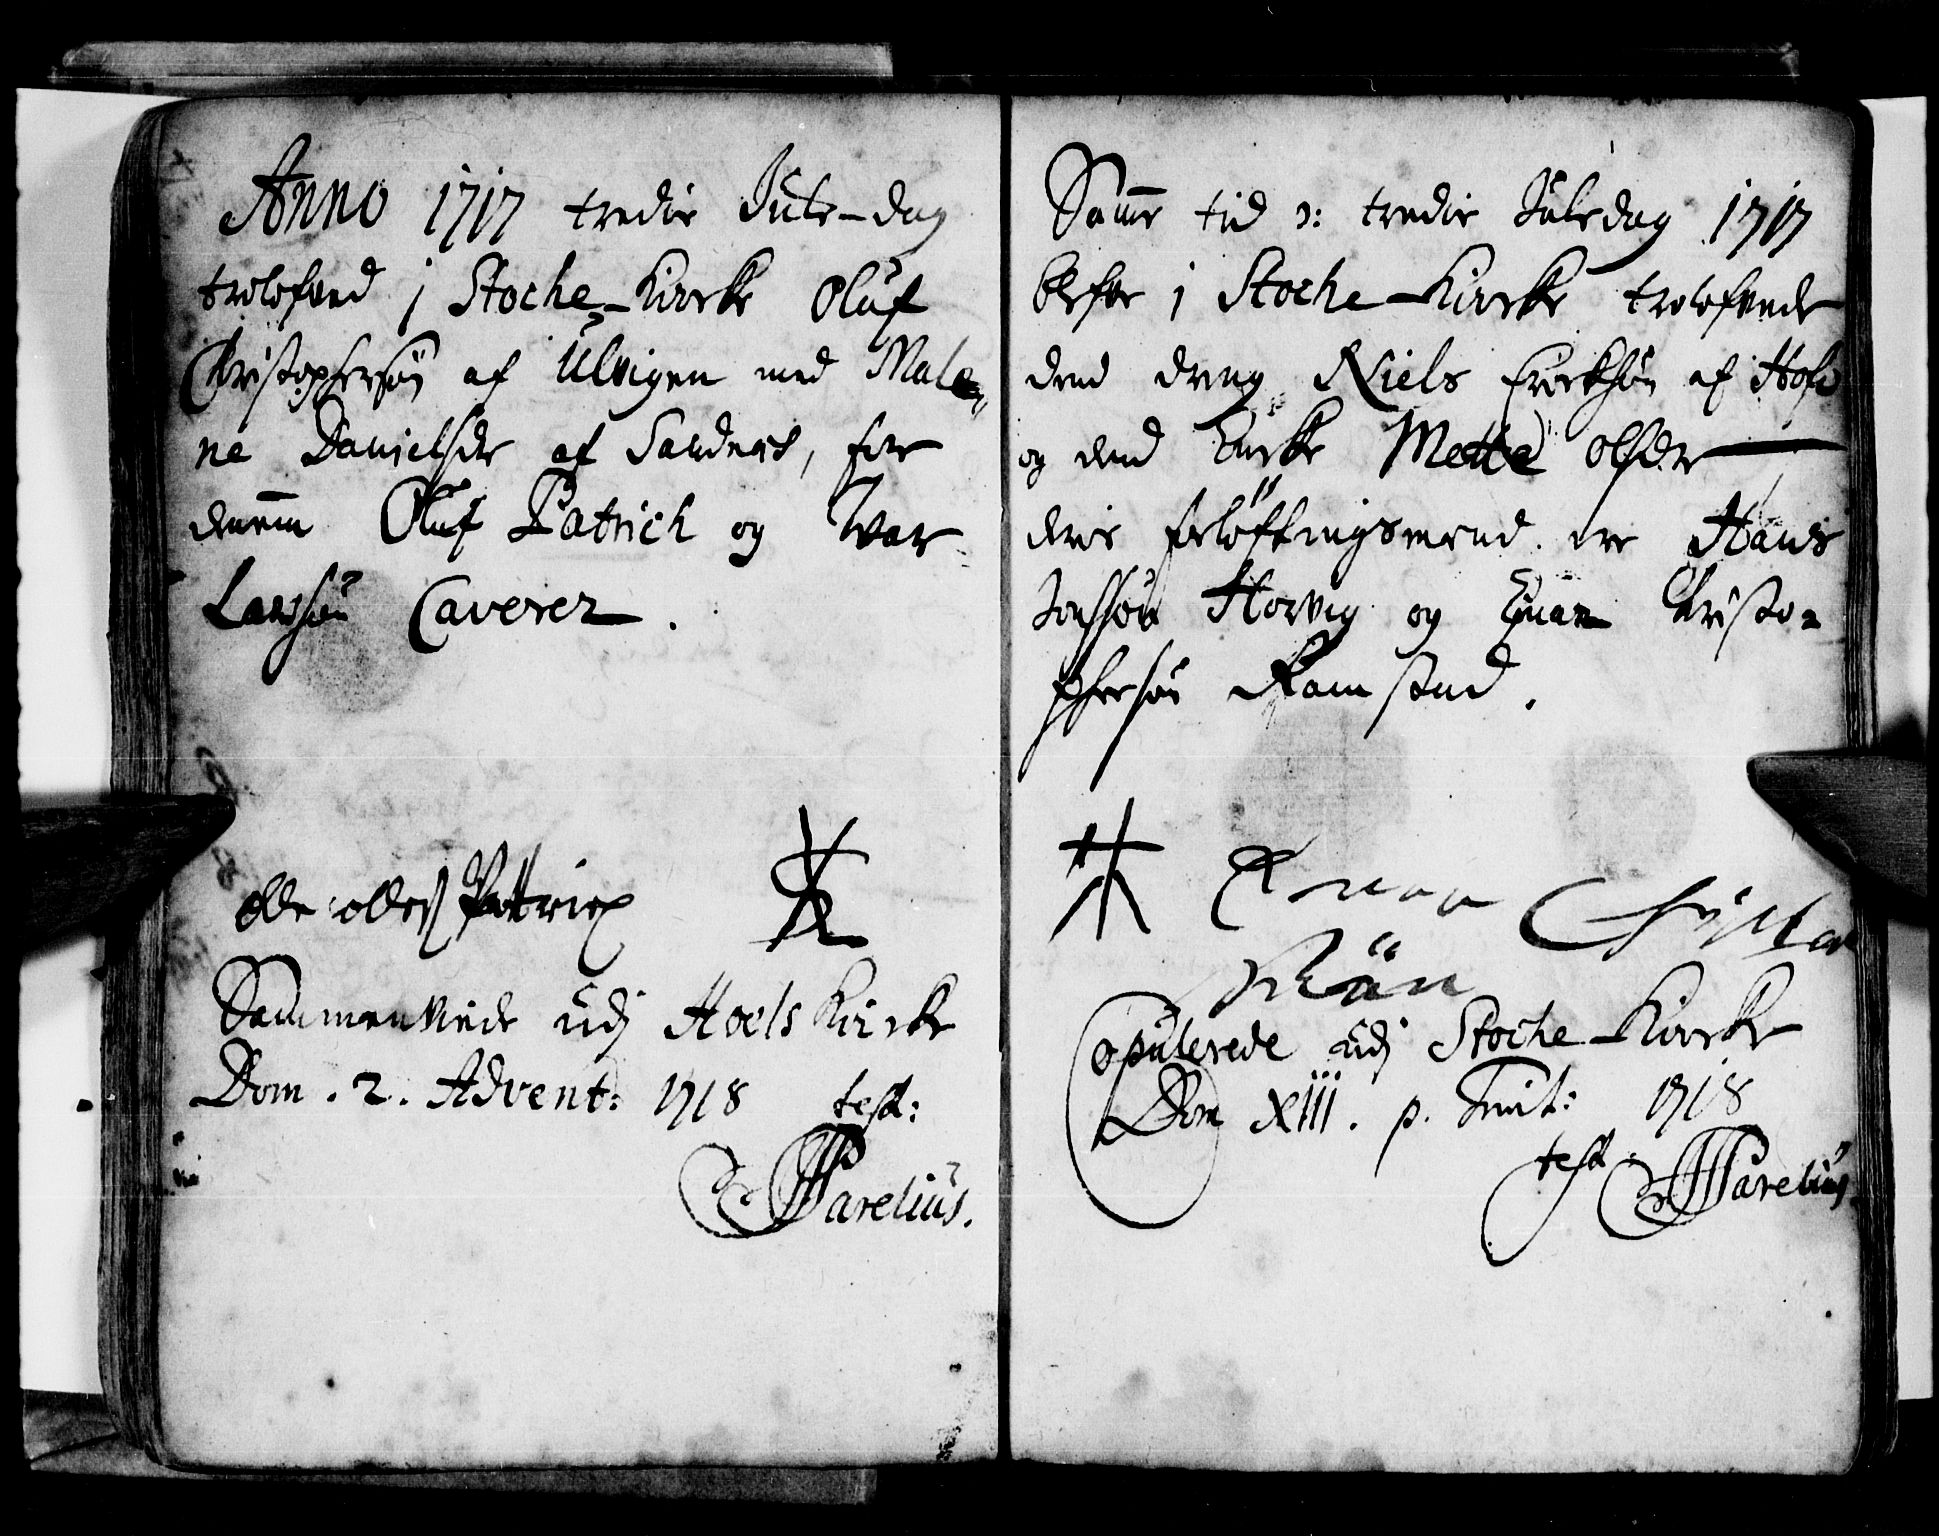 Anno 1717 tredie Jule-dag
trolofved j Stoche-Kircke Oluf
Christophersøn af Ulvigen med Male-
ne Danielsdr af Sandnes, for
dennem Oluf Patrich og Iver
Larssøn Caverer.
olle olles Pattrix
Sammenviede udj Hoels Kircke
Dom. 2. Advent: 1718 test:
Parelius.
Samme tid ɔ: tredie Juledag 1717
blefve j Stoche-Kircke trolofvede
dend dreng Niels Ericksøn af Hofs
og dend Encke Mette Olsdr
deris forløftningsmend ere Hans
Jonssøn Horvig og Einar Christo-
phersøn Ramstad.
Einar Christo
Copulerede udj Stoche-Kircke
Dom XIII. p. Trinit: 1718
test. Parelius.